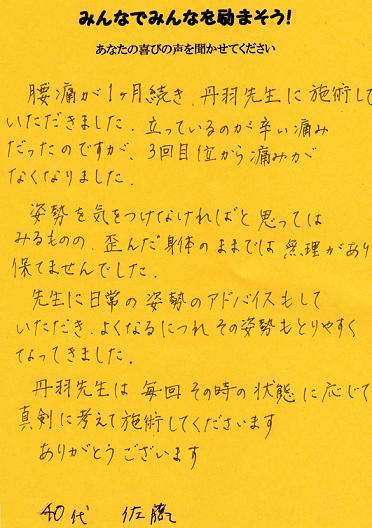 みんなでみんなを励まそう!
あなたの喜びの声を聞かせてください
腰痛が1ヶ月続き、丹羽先生に施術して
いただきました。立っているのが辛い痛み
だったのですが、3回目位から痛みが
なくなりました。
姿勢を気をつけなければと思っては
みるものの、歪んだ身体のままでは無理があり
保てませんでした。
先生に日常の姿勢のアドバイスもして
いただき、よくなるにつれその姿勢もとりやすく
なってきました。
丹羽先生は毎回その時の状態に応じて
真剣に考えて施術してくださいます
ありがとうございます
40代 佐藤